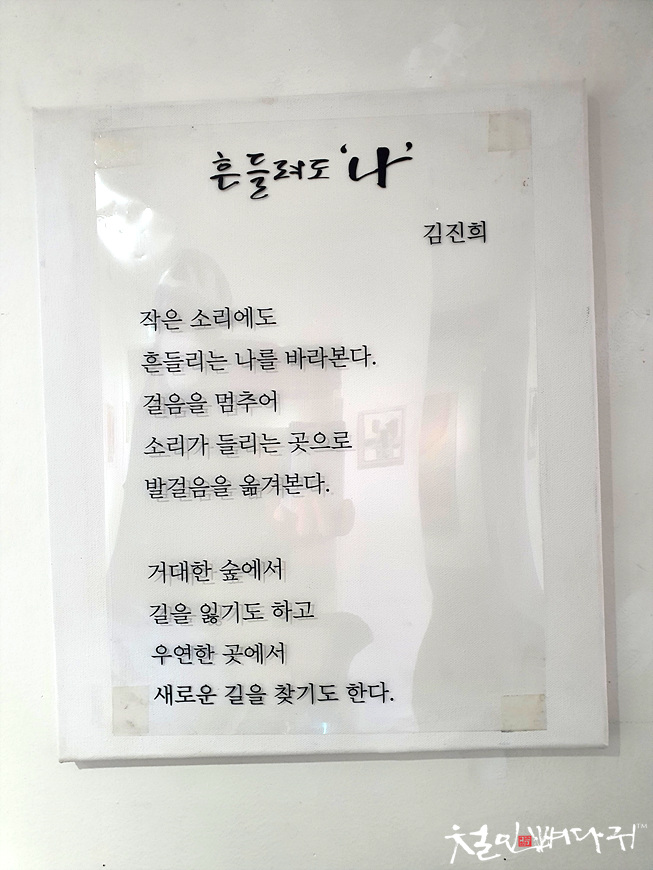 흔들려도 '나'
김진희
작은 소리에도
흔들리는 나를 바라본다.
걸음을 멈추어
소리가 들리는 곳으로
발걸음을 옮겨본다.
거대한 숲에서
길을 잃기도 하고
우연한 곳에서
새로운 길을 찾기도 한다.
철인뼈다귀™